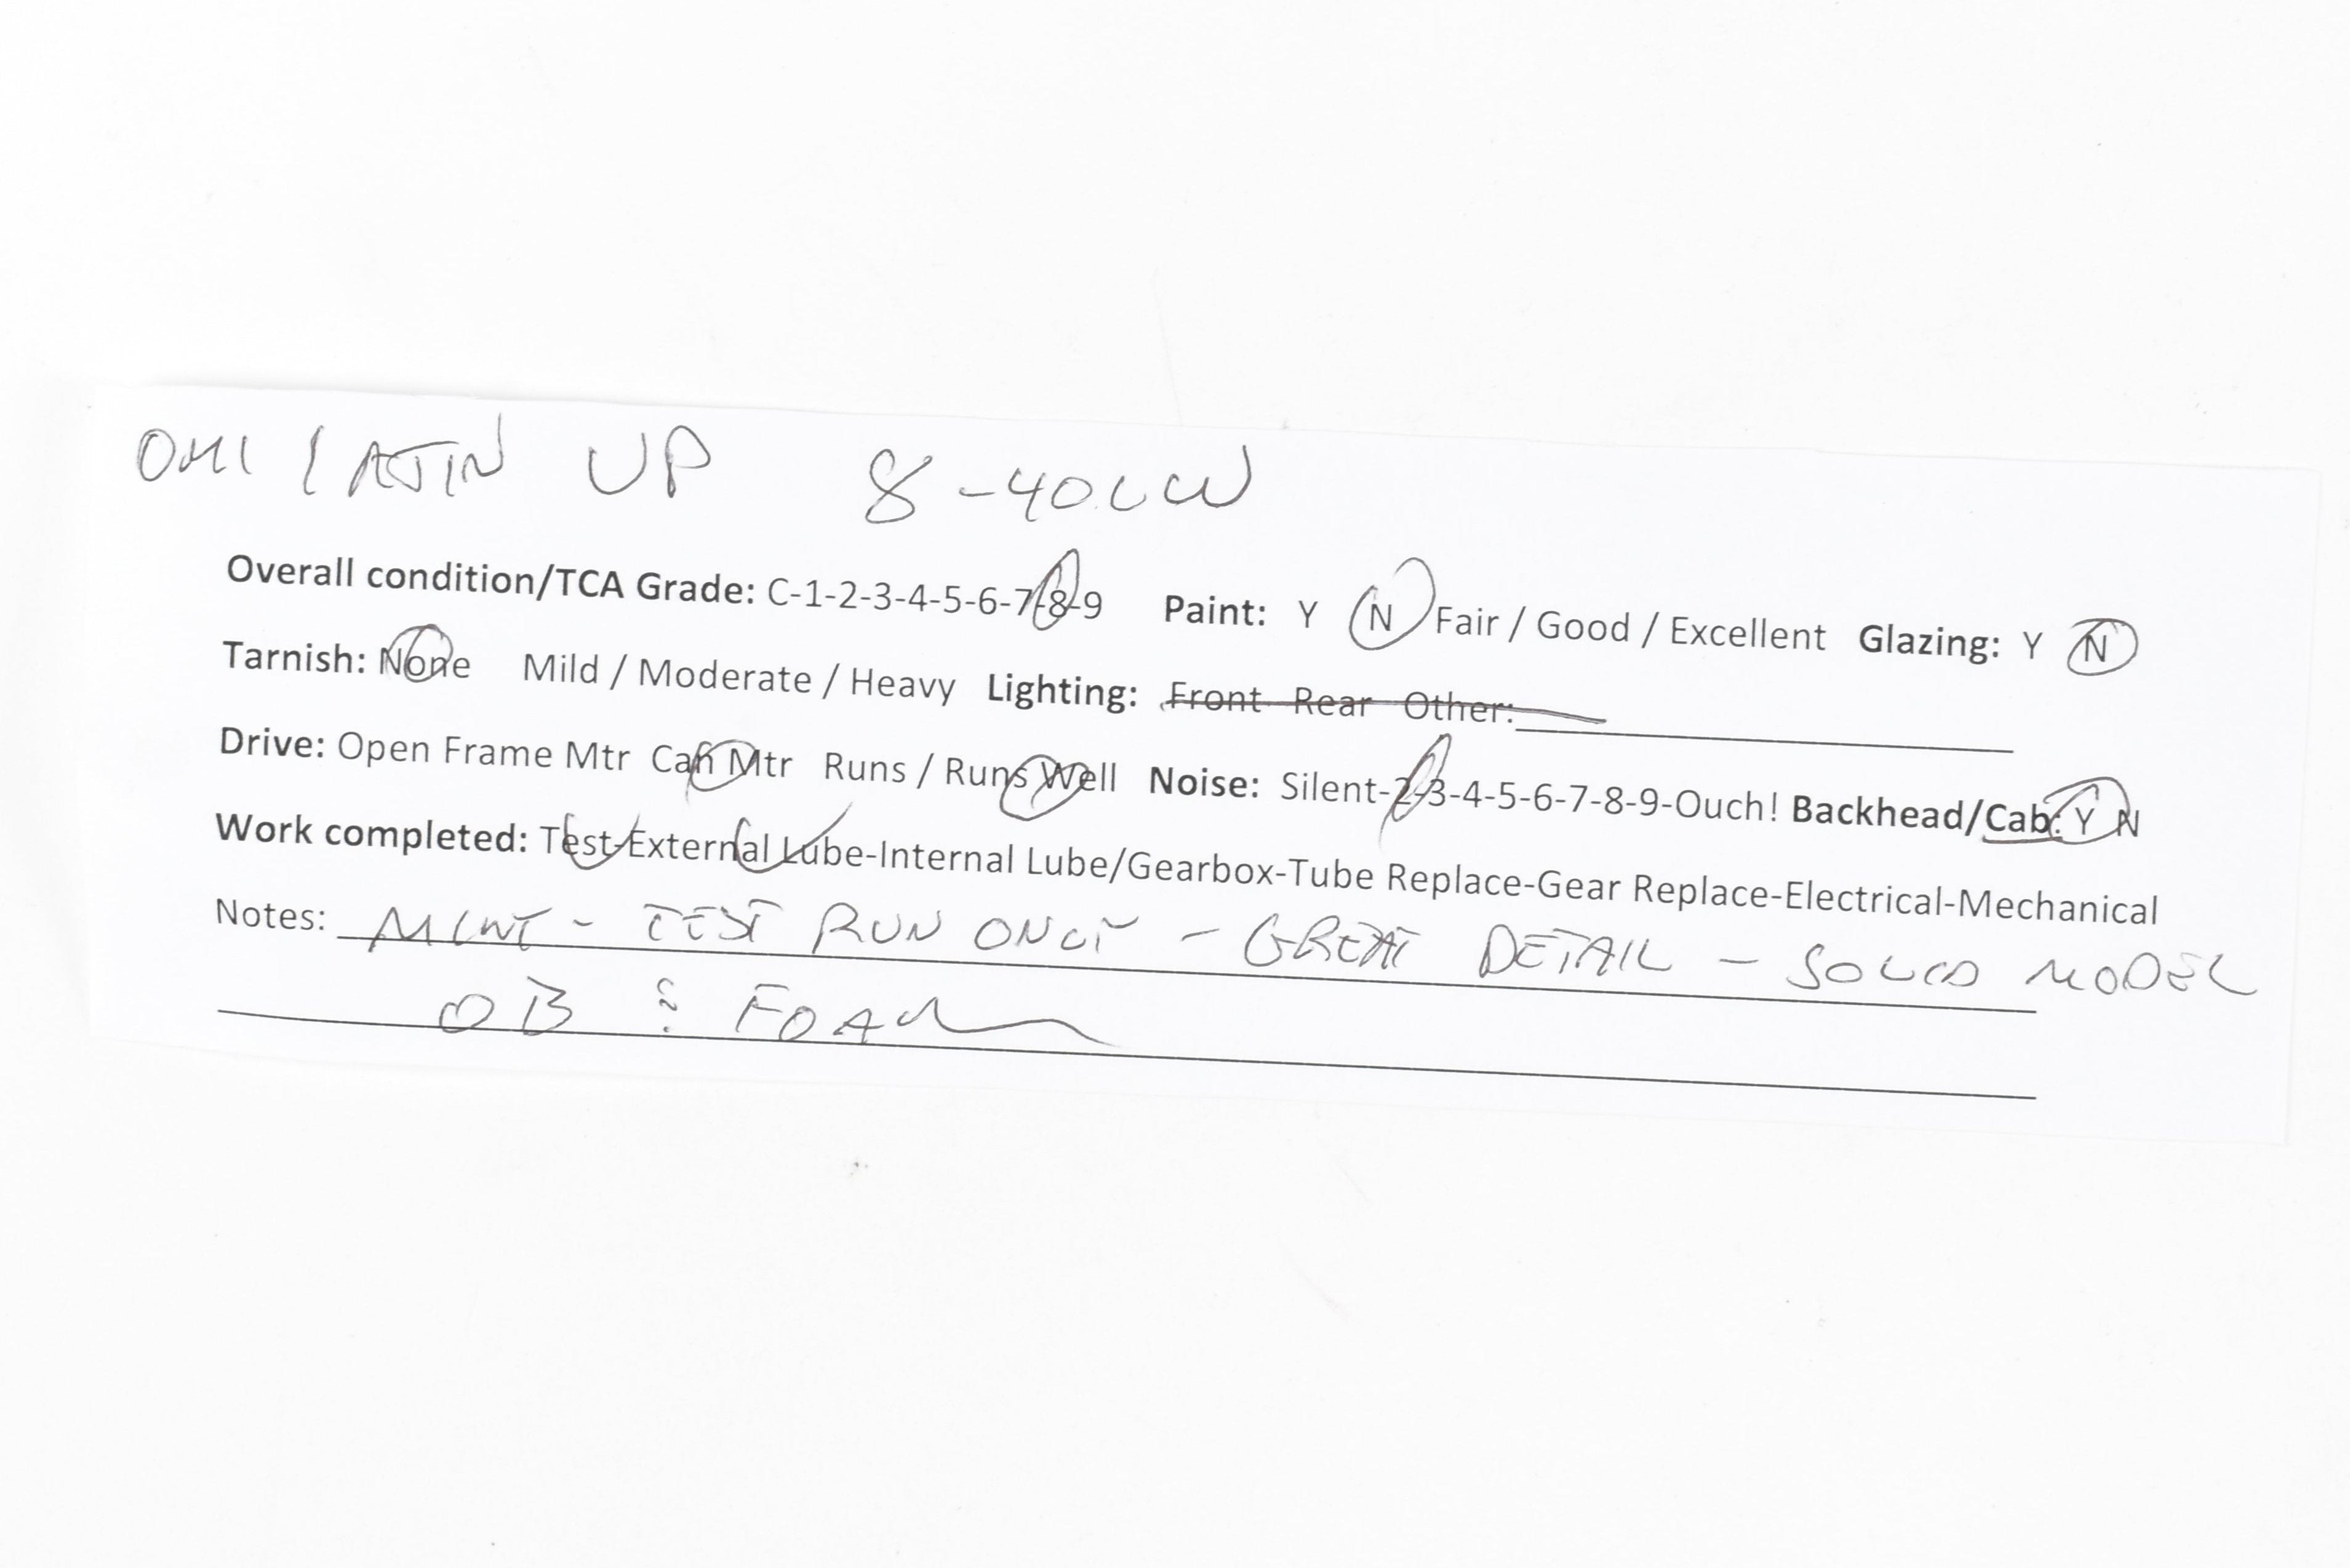 OMI / AJIN UP 8-40CW
Overall condition/TCA Grade: C-1-2-3-4-5-6-7-8-9 Paint: Y N Fair / Good / Excellent Glazing: Y N
Tarnish: None Mild / Moderate / Heavy Lighting: Front Rear Other:
Drive: Open Frame Mtr Can Mtr Runs / Runs Well Noise: Silent-2-3-4-5-6-7-8-9-Ouch! Backhead/Cab: Y N
Work completed: Test-External Lube-Internal Lube/Gearbox-Tube Replace-Gear Replace-Electrical-Mechanical
Notes: MINT - TEST RUN ONLY - GREAT DETAIL - SOLID MODEL
OB & FOAM